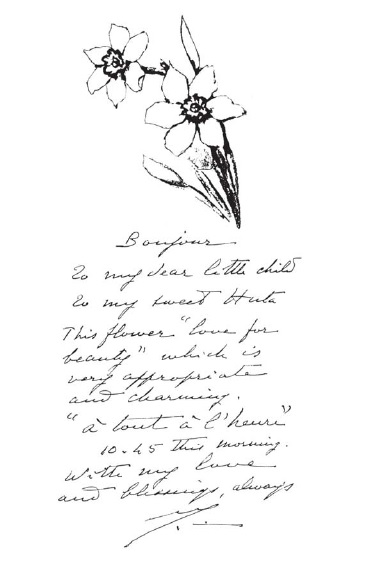 Bonjour
To my dear little child
to my sweet Huta
This flower "love for
beauty" which is
very appropriate
and charming.
"à tout à l'heure"
10.45 this morning.
With my love
and blessings, always